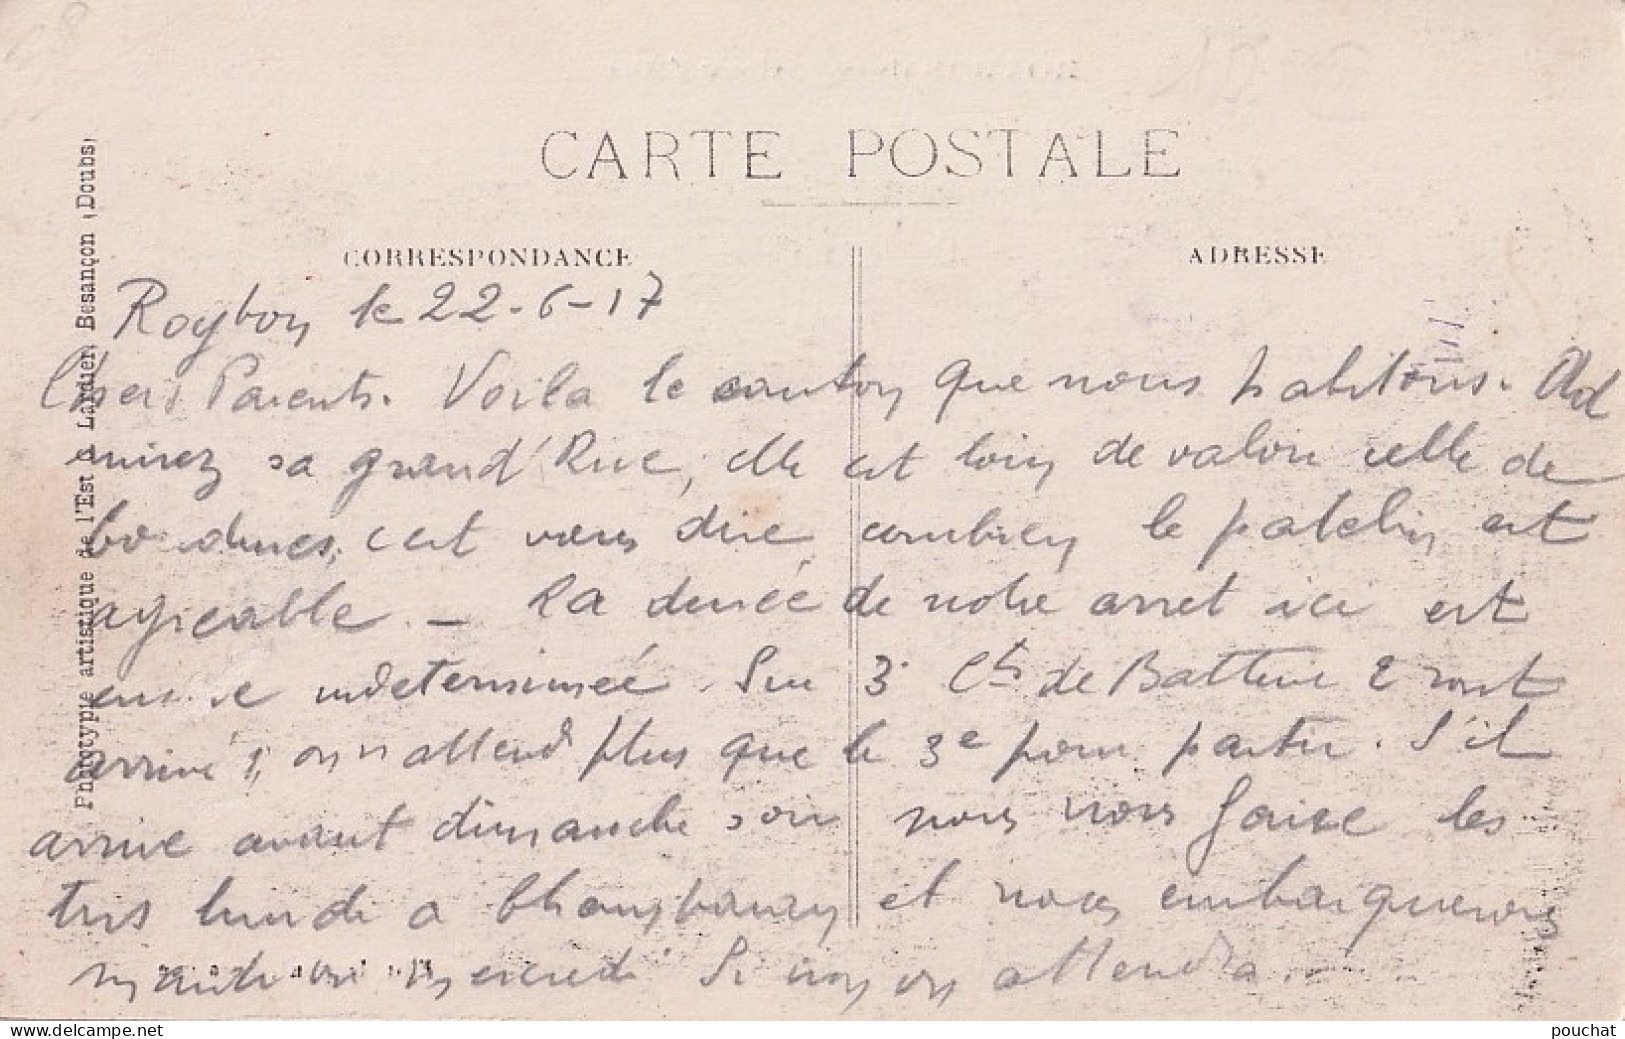 CARTE POSTALE
CORRESPONDANCE
ADRESSE
Phototypie artistique de l'Est Lardier, Besançon (Doubs)
Roybon le 22-6-17
Chers Parents. Voila le canton que nous habitons. Ad
mirez sa grand'Rue, elle est loin de valoir celle de
c'est vous dire combien le patelin est
agreable. — La durée de notre arret ici est
indeterminée. Sur 3 Cts de Batterie 2 sont
arrivés, on n'attend plus que le 3e pour partir. S'il
arrive avant dimanche soir nous nous faire les
tris lundi a et nous embarquerons
mardi ou mercredi Si non on attendra.
www.delcampe.net
pouchat